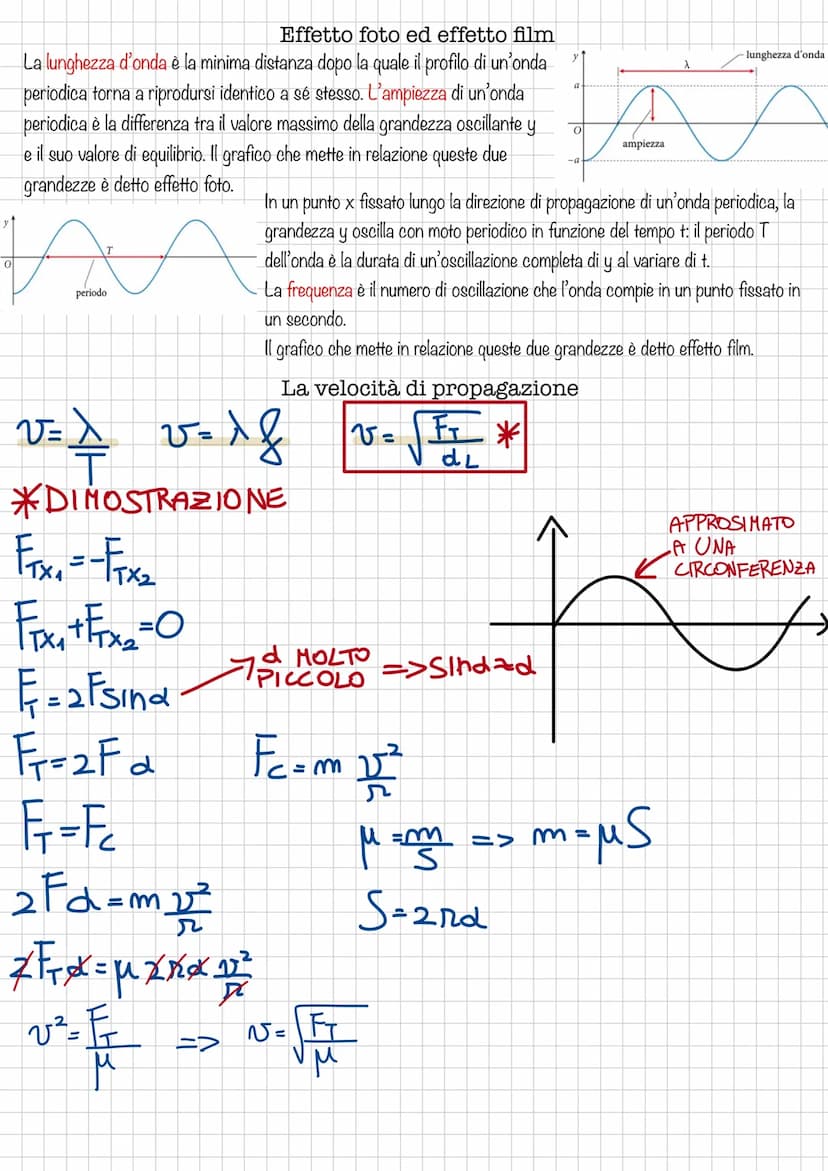 Effetto foto ed effetto film
La lunghezza d'onda è la minima distanza dopo la quale il profilo di un'onda
periodica torna a riprodursi identico a sé stesso. L'ampiezza di un'onda
periodica è la differenza tra il valore massimo della grandezza oscillante y
e il suo valore di equilibrio. Il grafico che mette in relazione queste due
grandezze è detto effetto foto.
y
lunghezza d'onda
λ
a
O
ampiezza
-a
In un punto x fissato lungo la direzione di propagazione di un'onda periodica, la
grandezza y oscilla con moto periodico in funzione del tempo t: il periodo T
dell'onda è la durata di un'oscillazione completa di y al variare di t.
La frequenza è il numero di oscillazione che l'onda compie in un punto fissato in
un secondo.
Il grafico che mette in relazione queste due grandezze è detto effetto film.
y
T
O
periodo
La velocità di propagazione
v = λ/T v = λf v = √(F_T/d_L) *
*DIMOSTRAZIONE
F_TX₁ = -F_TX₂
F_TX₁ + F_TX₂ = 0
F_T = 2F sin α
α MOLTO PICCOLO => sin α ≈ α
APPROSIMATO
A UNA
CIRCONFERENZA
F_T = 2F α F_C = m v²/r
F_T = F_C
μ = m/S => m = μS
2Fα = m v²/r
S = 2rα
2F_T α = μ 2rα v²/r
v² = F_T/μ => v = √(F_T/μ)